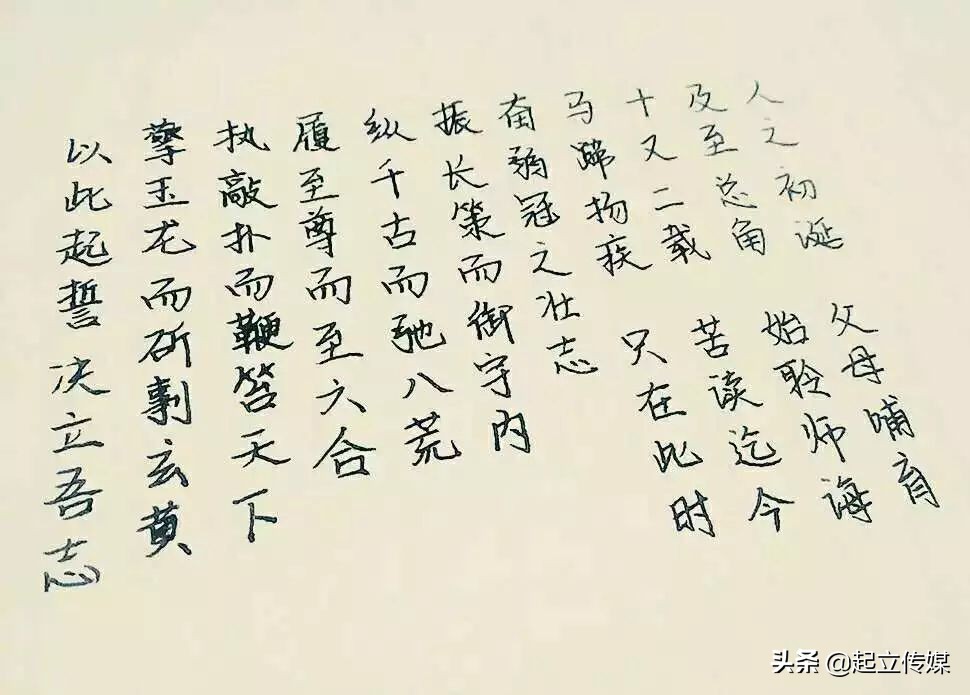 人之初诞 父母哺育
及至总角 始聆师诲
十又二载 苦读迄今
马蹄扬疾 只在此时
奋弱冠之壮志
振长策而御宇内
纵千古而驰八荒
履至尊而至六合
执敲扑而鞭笞天下
擎玉龙而斫剸玄黄
以此起誓决立吾志
头条 @起立传媒